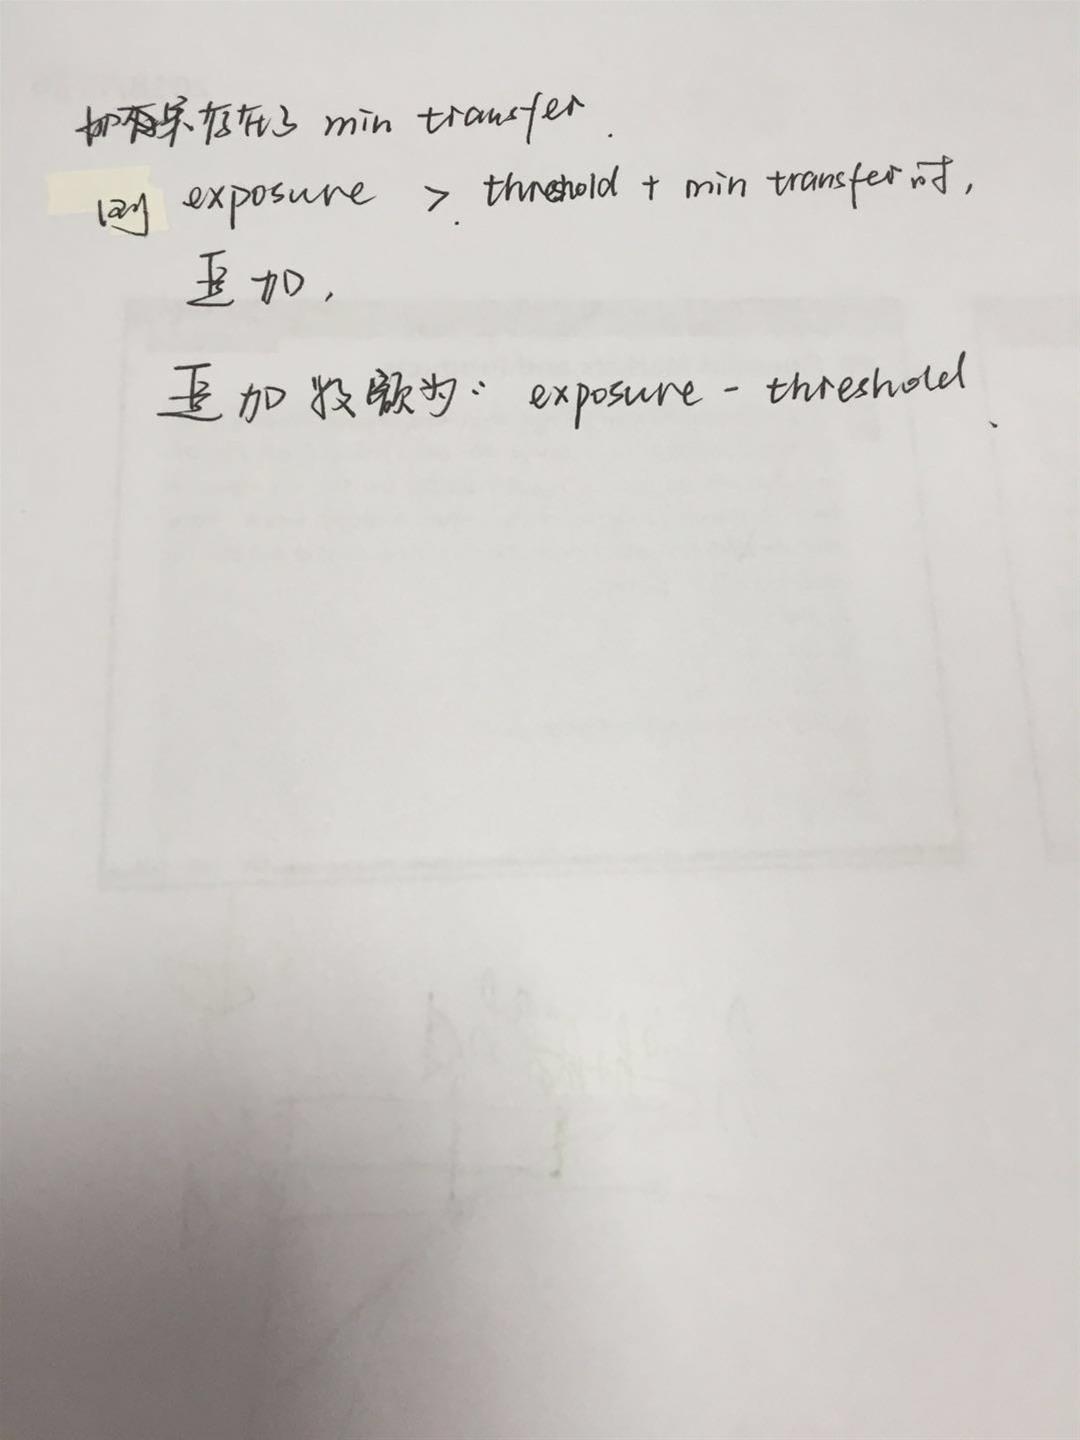 如果存在了 min transfer.
则 exposure > threshold + min transfer 时,
追加,
追加数额为: exposure - threshold.